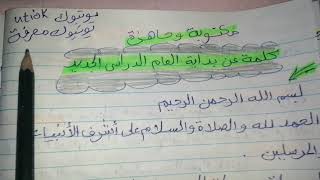 يوتيوك utiok
يوتيوك معرفة
مكتوبة وجاهزة
كلمة عن بداية العام الدراسي الجديد
بسم الله الرحمن الرحيم
الحمد لله والصلاة والسلام على أشرف الأنبياء
والمرسلين.